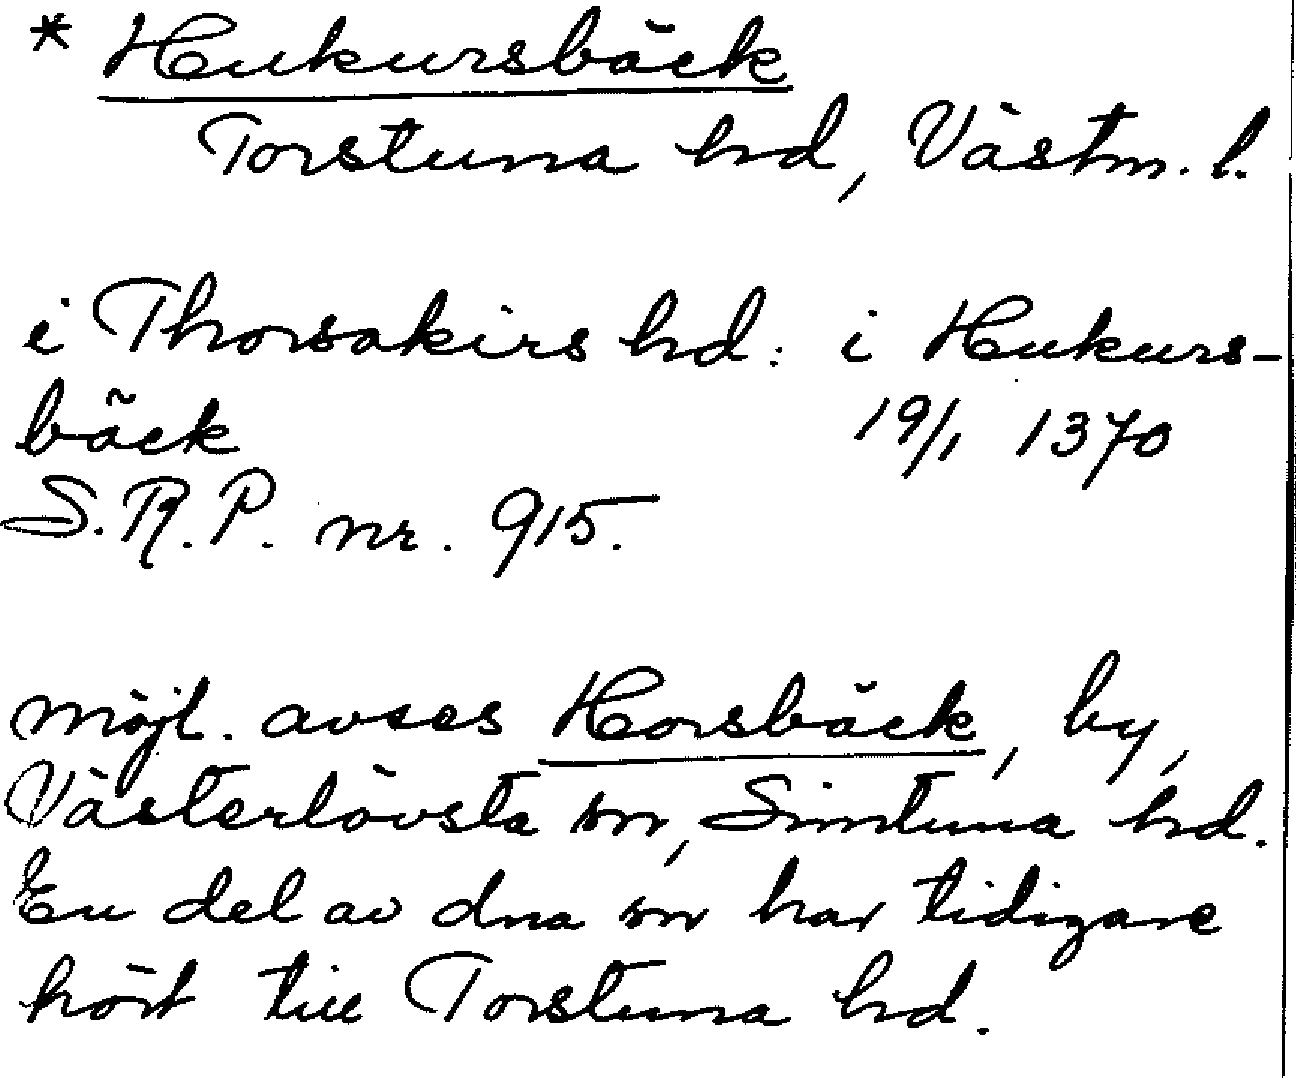 * Hukursbäck
Torstuna hd, Västm. l.
i Thorsakirs hd: i Hukurs-
bäck 19/1 1370
S.R.P. nr. 915.
möjl. avses Horsbäck, by,
Västerlövsta sn, Simtuna hd.
En del av dna sn har tidigare
hört till Torstuna hd.